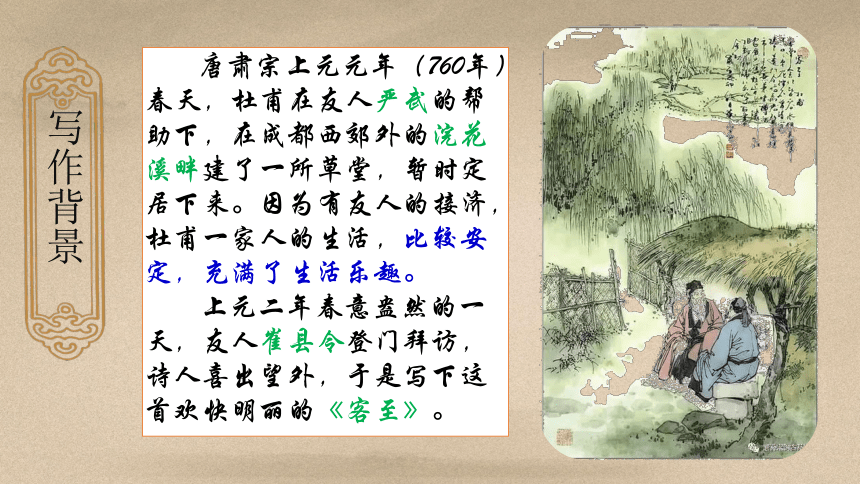 写作背景
唐肃宗上元元年（760年）
春天，杜甫在友人严武的帮
助下，在成都西郊外的浣花
溪畔建了一所草堂，暂时定
居下来。因为有友人的接济，
杜甫一家人的生活，比较安
定，充满了生活乐趣。
上元二年春意盎然的一
天，友人崔县令登门拜访，
诗人喜出望外，于是写下这
首欢快明丽的《客至》。